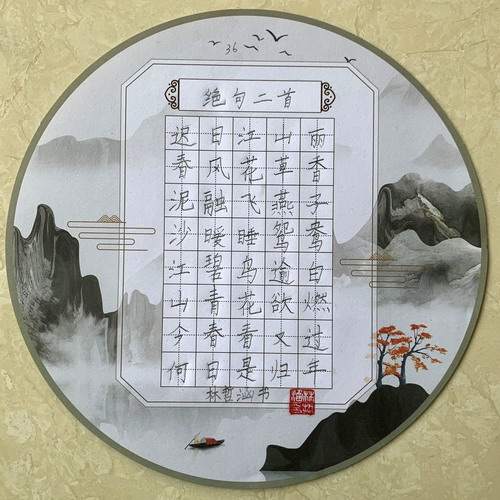 36
绝句二首
迟日江山丽
春风花草香
泥融飞燕子
沙暖睡鸳鸯
江碧鸟逾白
山青花欲燃
今春看又过
何日是归年
林哲涵书